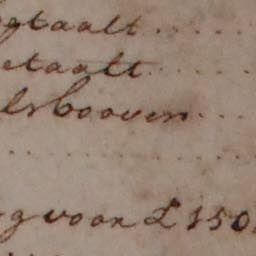 gtaalt.....
etaalt.....
lsbooven...
..........
g voor £ 150